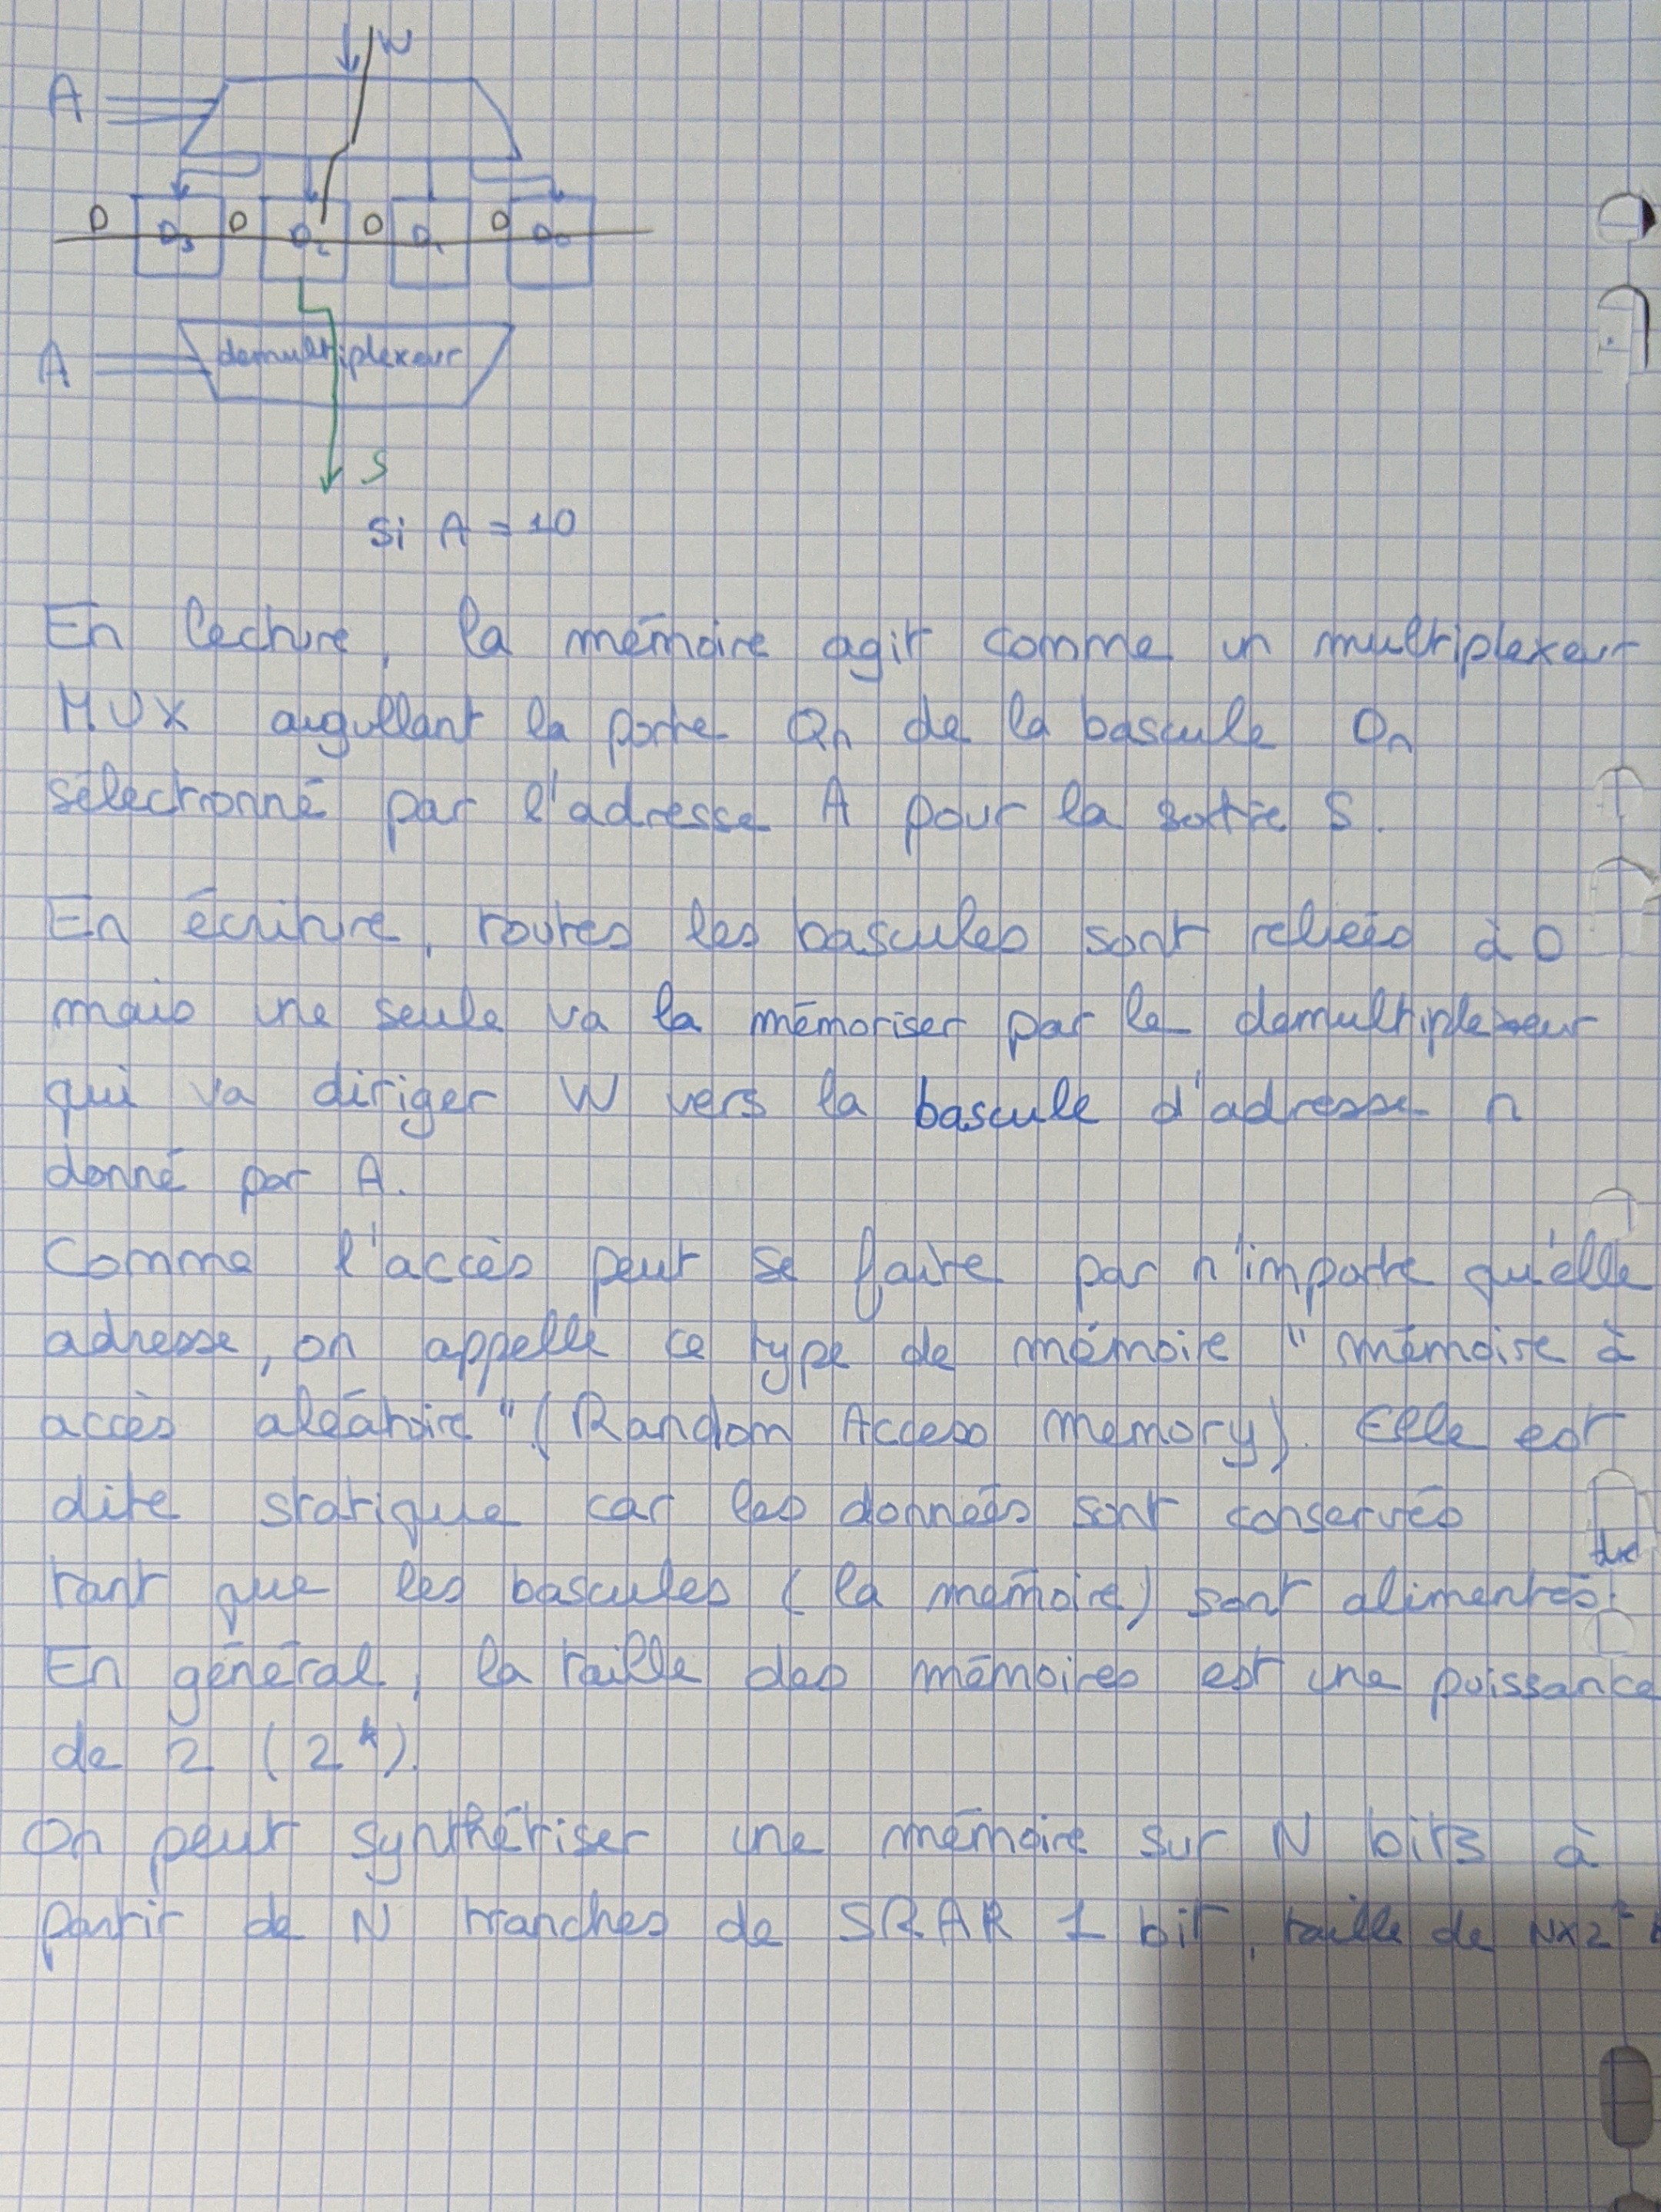 W
A
D D₃ D D₂ D D₁ D D₀
A demultiplexeur
S
Si A = 10
En lecture, la mémoire agit comme un multiplexeur
MUX aiguillant la porte Qn de la bascule Dn
sélectionné par l'adresse A pour la sortie S.
En écriture, toutes les bascules sont reliées à D
mais une seule va la mémoriser par le demultiplexeur
qui va diriger W vers la bascule d'adresse n
donné par A.
Comme l'accès peut se faire par n'importe qu'elle
adresse, on appelle ce type de mémoire "mémoire à
accès aléatoire" (Random Access Memory). Elle est
dite statique car les données sont conservés
tant que les bascules (la mémoire) sont alimentés.
En général, la taille des mémoires est une puissance
de 2 (2ᵏ).
On peut synthétiser une mémoire sur N bits à
partir de N tranches de SRAR 1 bit, taille de N×2